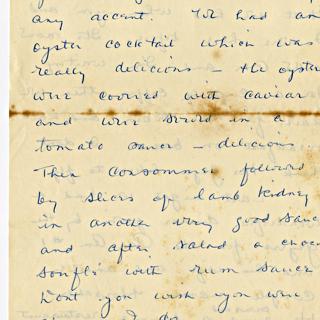 any accent. We had an
oyster cocktail which was
really delicious – the oysters
were covered with caviar
and were served in a
tomato sauce – delicious.
Then consommé followed
by slices of lamb kidney
in another very good sauce
and after salad a choc
souflé with rum sauce
Don't you wish you were